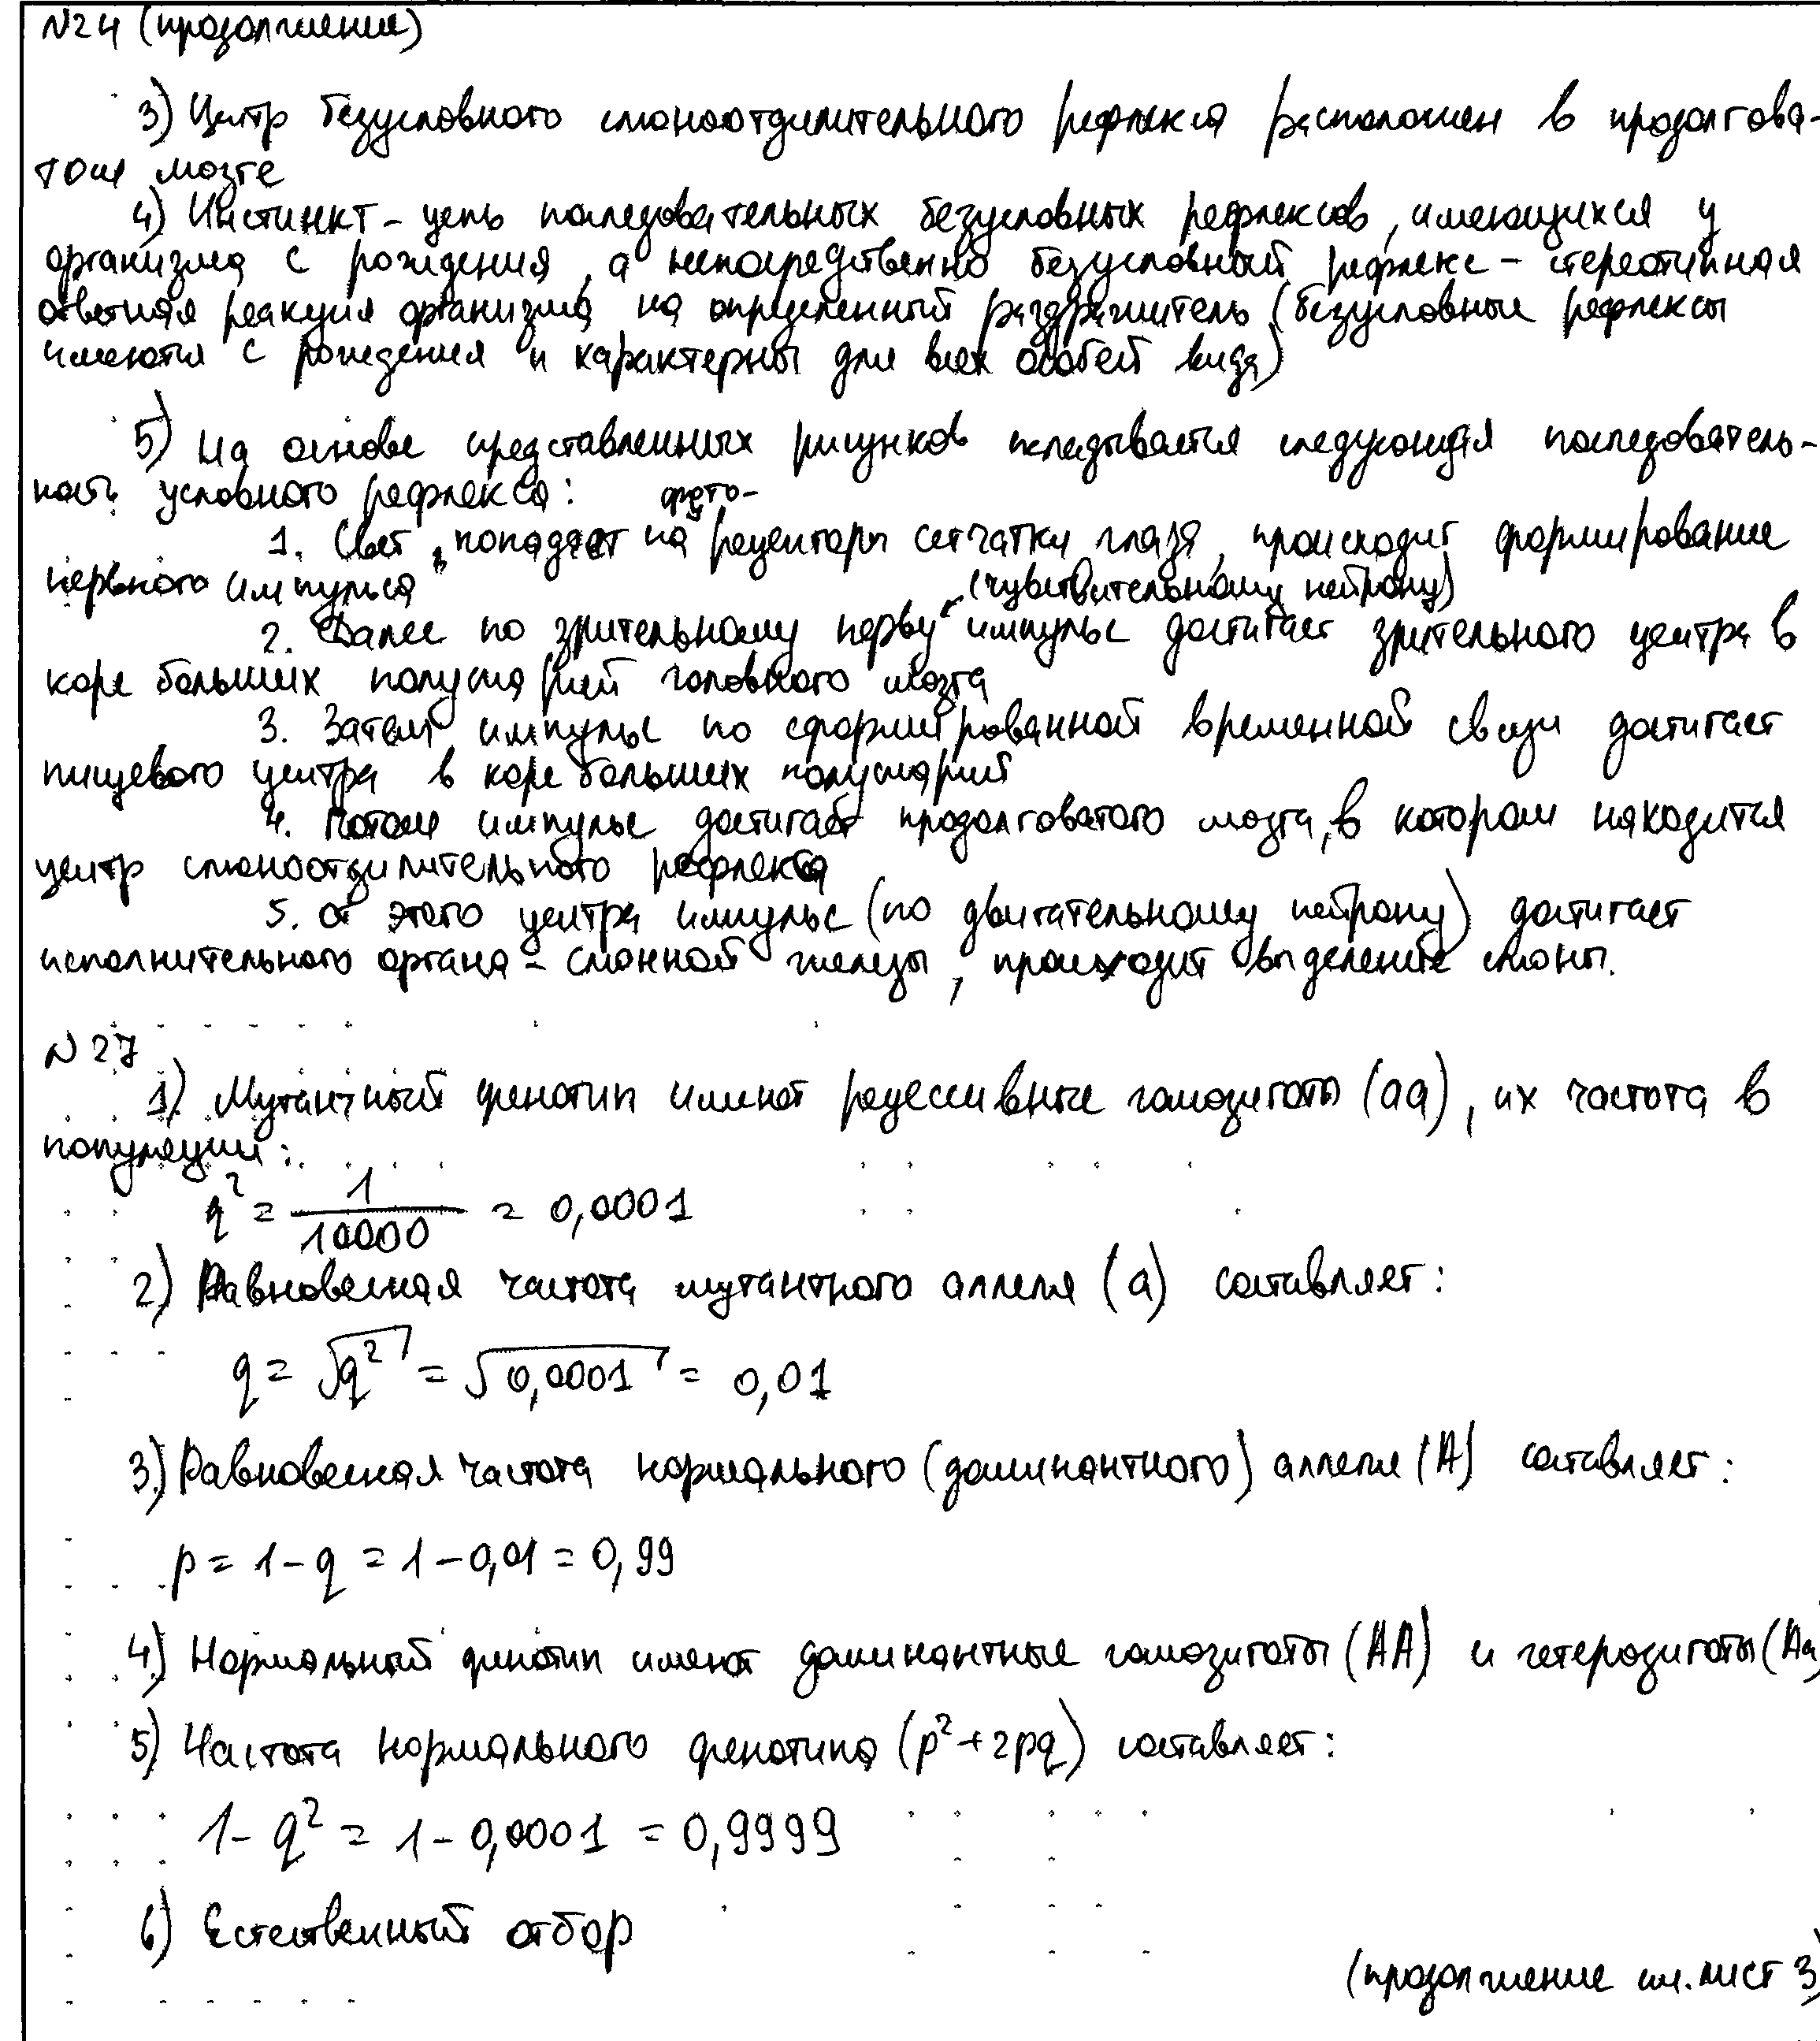 N24 (продолжение)
3) Центр безусловного слюноотделительного рефлекса расположен в продолгова-
том мозге
4) Инстинкт - цепь последовательных безусловных рефлексов, имеющихся у
организма с рождения, а непосредственно безусловный рефлекс - стереотипная
ответная реакция организма на определенный раздражитель (безусловные рефлексы
имеются с рождения и характерны для всех особей вида)
5) На основе представленных рисунков складывается следующая последователь-
ность условного рефлекса:
1. Свет попадает на фоторецепторы сетчатки глаза, происходит формирование
нервного импульса
2. Далее по зрительному нерву (чувствительному нейрону) импульс достигает зрительного центра в
коре больших полушарий головного мозга
3. Затем импульс по сформированной временной связи достигает
пищевого центра в коре больших полушарий
4. Потом импульс достигает продолговатого мозга, в котором находится
центр слюноотделительного рефлекса
5. От этого центра импульс (по двигательному нейрону) достигает
исполнительного органа - слюнной железы, происходит выделение слюны.
N 27
1) Мутантный фенотип имеют рецессивные гомозиготы (аа), их частота в
популяции:
q² = 1/10000 = 0,0001
2) Равновесная частота мутантного аллеля (а) составляет:
q = √q² = √0,0001 = 0,01
3) Равновесная частота нормального (доминантного) аллеля (А) составляет:
p = 1 - q = 1 - 0,01 = 0,99
4) Нормальный фенотип имеют доминантные гомозиготы (АА) и гетерозиготы (Аа)
5) Частота нормального фенотипа (p² + 2pq) составляет:
1 - q² = 1 - 0,0001 = 0,9999
6) Естественный отбор
(продолжение см. лист 3)